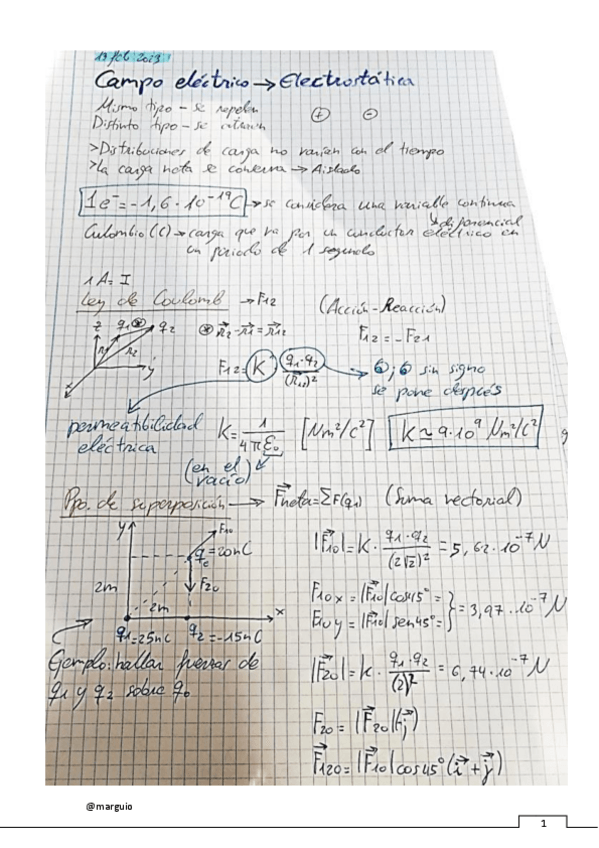 17 feb 2023
Campo eléctrico → Electrostática
Mismo tipo - se repelen
Distinto tipo - se atraen
+ -
>Distribuciones de carga no varían con el tiempo
>La carga neta se conserva → Aislado
1e⁻ = -1,6 · 10⁻¹⁹C → se considera una variable continua
↘ diferencial
Culombio (C) → carga que va por un conductor eléctrico en
un periodo de 1 segundo
1 A = I
Ley de Coulomb → F12
(Acción - Reacción)
z q1 q2
R1 R2
y
x
⊛ R⃗2 - R⃗1 = R⃗12
F12 = -F21
F12 = K q1·q2/(R12)²
sin signo
se pone después
permeatibilidad
eléctrica
K = 1/4πε₀ [Nm²/C²]
K ≃ 9·10⁹ Nm²/C²
(en el
vacío)
Ppo. de superposición → F⃗neta = ΣF(qi) (Suma vectorial)
y
F10
q0 = 20nC
F20
2m
2m
x
q1 = 25nC q2 = -15nC
Ejemplo: hallar fuerzas de
q1 y q2 sobre q0
|F⃗10| = K · q1·q2/(2√2)² = 5,62·10⁻⁷ N
F10x = |F⃗10| cos45° =
F10y = |F⃗10| sen45° =
} = 3,97·10⁻⁷ N
|F⃗20| = K · q1·q2/(2)² = 6,74·10⁻⁷ N
F20 = |F⃗20|(-j⃗)
F⃗120 = |F⃗10| cos45° (i⃗ + j⃗)
@marguio
1